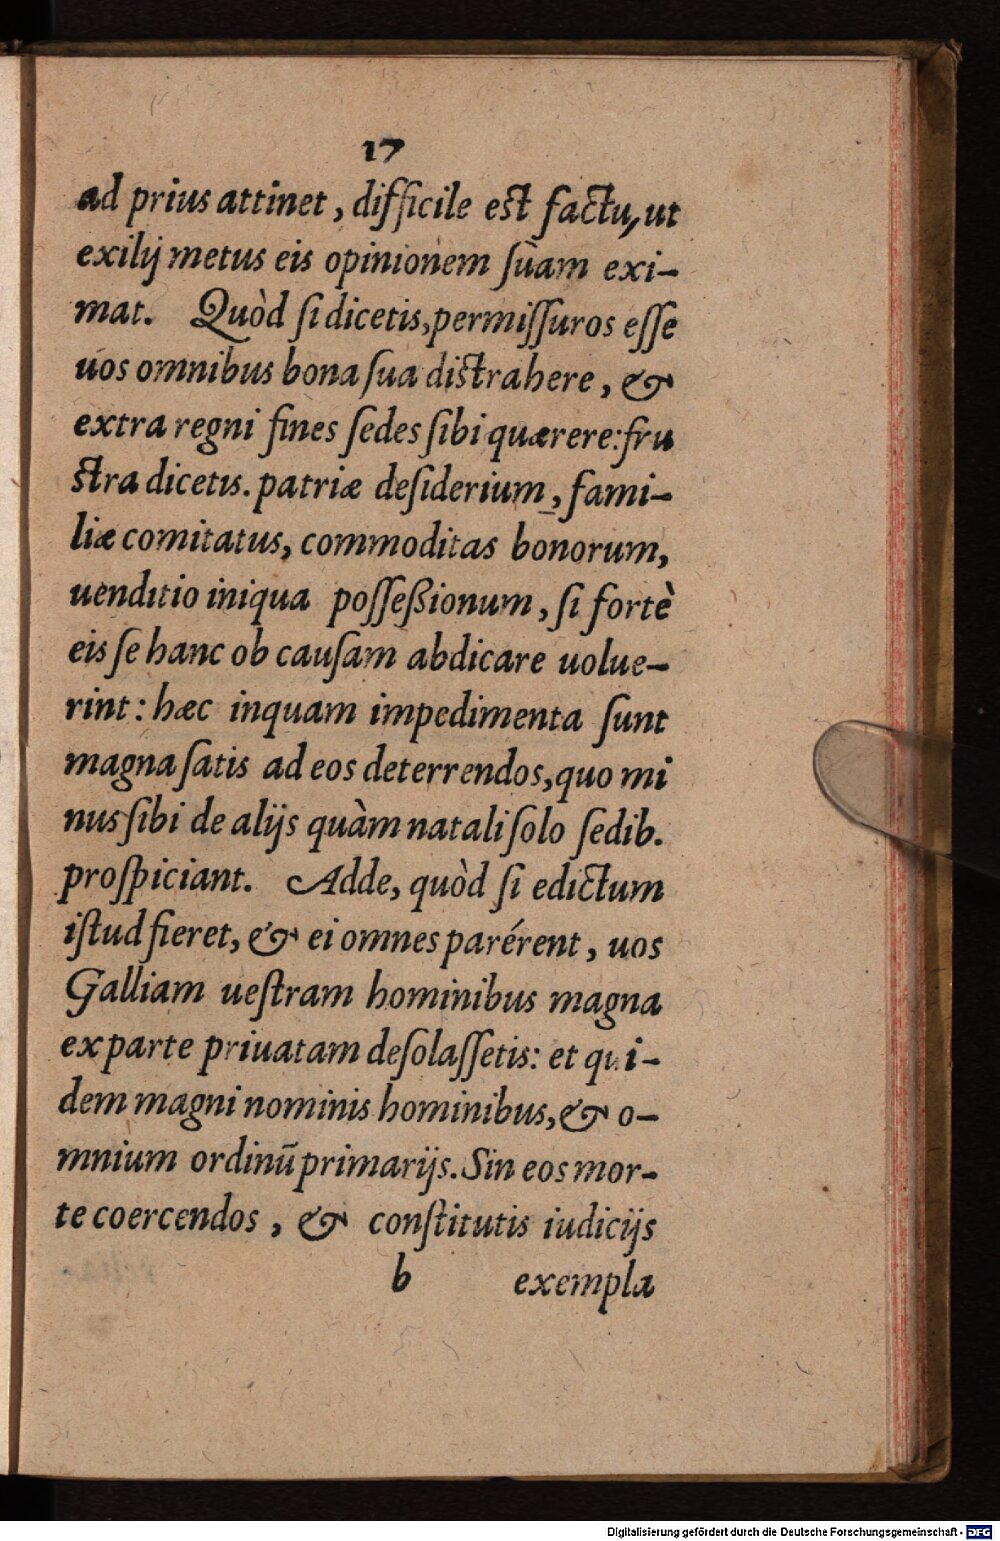 17
ad prius attinet, difficile est factu, ut
exilij metus eis opinionem suam exi-
mat. Quòd si dicetis, permissuros esse
uos omnibus bona sua distrahere, &
extra regni fines sedes sibi quærere: fru
stra dicetis. patriæ desiderium, fami-
liæ comitatus, commoditas bonorum,
uenditio iniqua posseßionum, si fortè
eis se hanc ob causam abdicare uolue-
rint: hæc inquam impedimenta sunt
magna satis ad eos deterrendos, quo mi
nus sibi de alijs quàm natali solo sedib.
prospiciant. Adde, quòd si edictum
istud fieret, & ei omnes parérent, uos
Galliam uestram hominibus magna
ex parte priuatam desolassetis: et qui-
dem magni nominis hominibus, & o-
mnium ordinū primarijs. Sin eos mor-
te coercendos, & constitutis iudicijs
b exempla
Digitalisierung gefördert durch die Deutsche Forschungsgemeinschaft - DFG